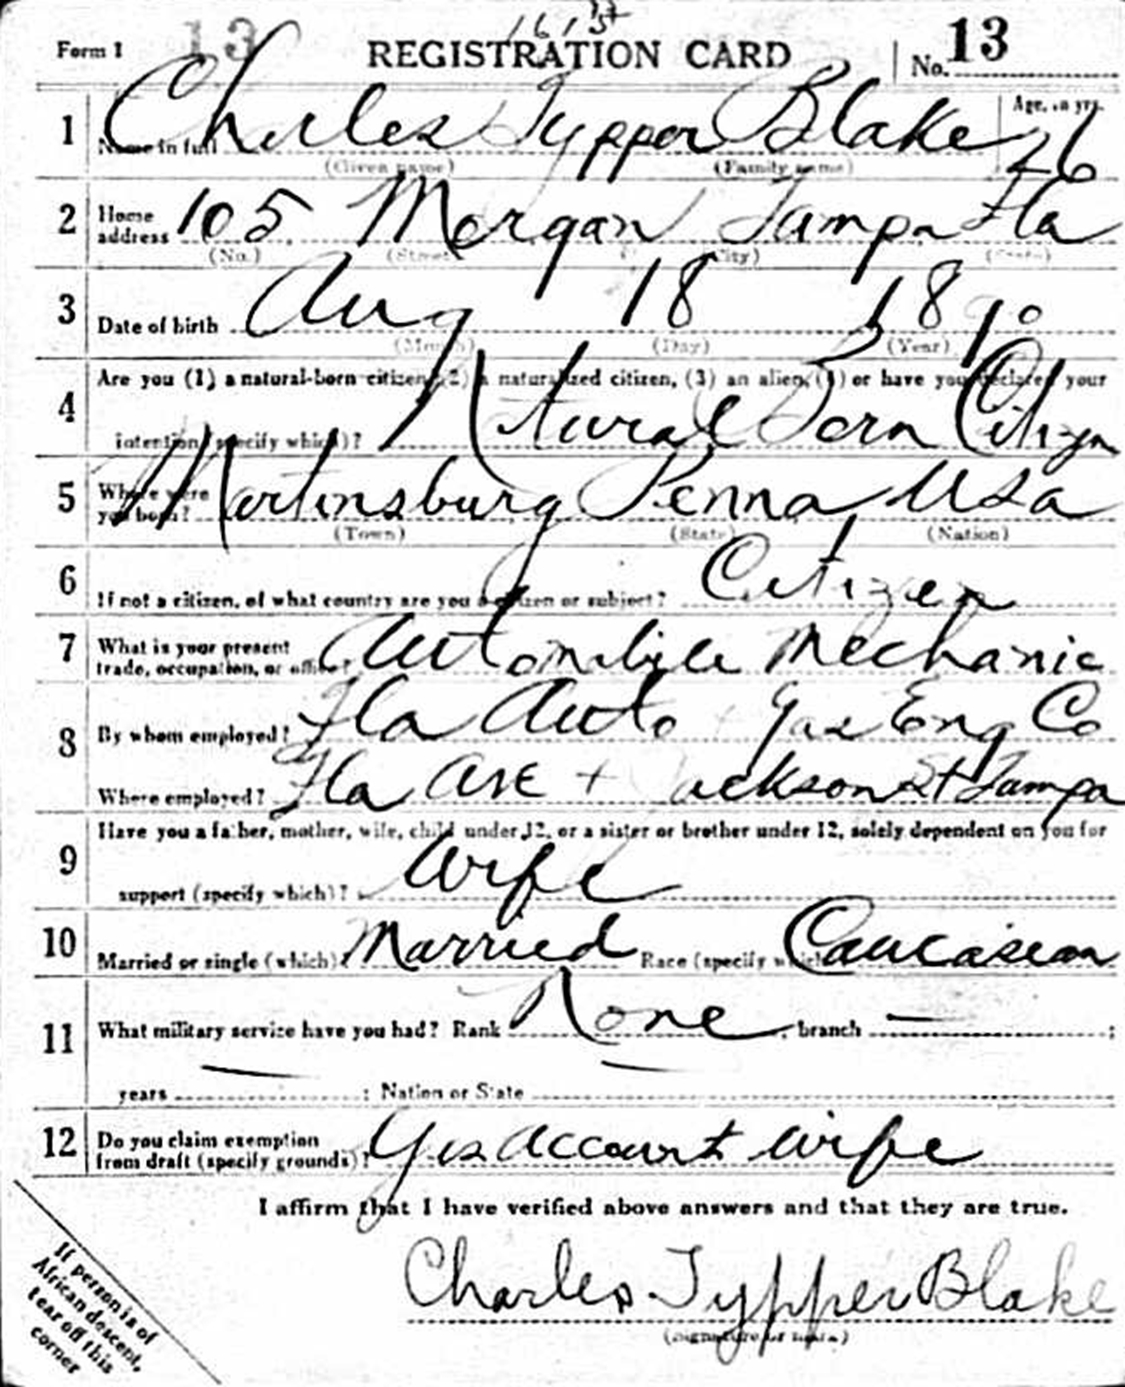 13
Form 1 REGISTRATION CARD No. 13
1 Name in full Charles Typper Blake Age, in yrs. 26
(Given name) (Family name)
2 Home address 105 Morgan Tampa Fla
(No.) (Street) (City) (State)
3 Date of birth Aug 18 1890
(Month) (Day) (Year)
4 Are you (1) a natural-born citizen, (2) a naturalized citizen, (3) an alien, (4) or have you declared your
intention (specify which)? Natural Born Citizen
5 Where were you born? Martinsburg Penna USa
(Town) (State) (Nation)
6 If not a citizen, of what country are you a citizen or subject? Citizen
7 What is your present trade, occupation, or office? Automobile Mechanic
8 By whom employed? Fla Auto + Gas Eng Co
Where employed? Fla Ave + Jackson St Tampa
9 Have you a father, mother, wife, child under 12, or a sister or brother under 12, solely dependent on you for
support (specify which)? Wife
10 Married or single (which)? Married Race (specify which) Caucasian
11 What military service have you had? Rank None, branch — ;
years — ; Nation or State —
12 Do you claim exemption from draft (specify grounds)? Yes account wife
I affirm that I have verified above answers and that they are true.
Charles Typper Blake
(Signature or mark)
If person is of
African descent,
tear off this
corner